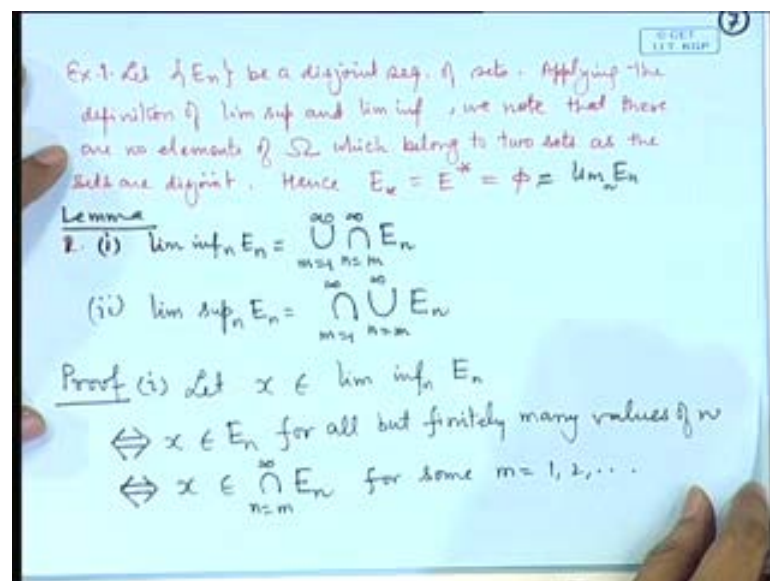 7
© CET
I.I.T. KGP
Ex.1. Let {En} be a disjoint seq. of sets. Applying the
definition of lim sup and lim inf, we note that there
are no elements of Ω which belong to two sets as the
sets are disjoint. Hence E* = E* = φ = lim En
Lemma
1. (i) lim infn En = ∞∪m=1 ∞∩n=m En
(ii) lim supn En = ∞∩m=1 ∞∪n=m En
Proof (i) Let x ∈ lim infn En
⇔ x ∈ En for all but finitely many values of n
⇔ x ∈ ∞∩n=m En for some m = 1, 2, ...